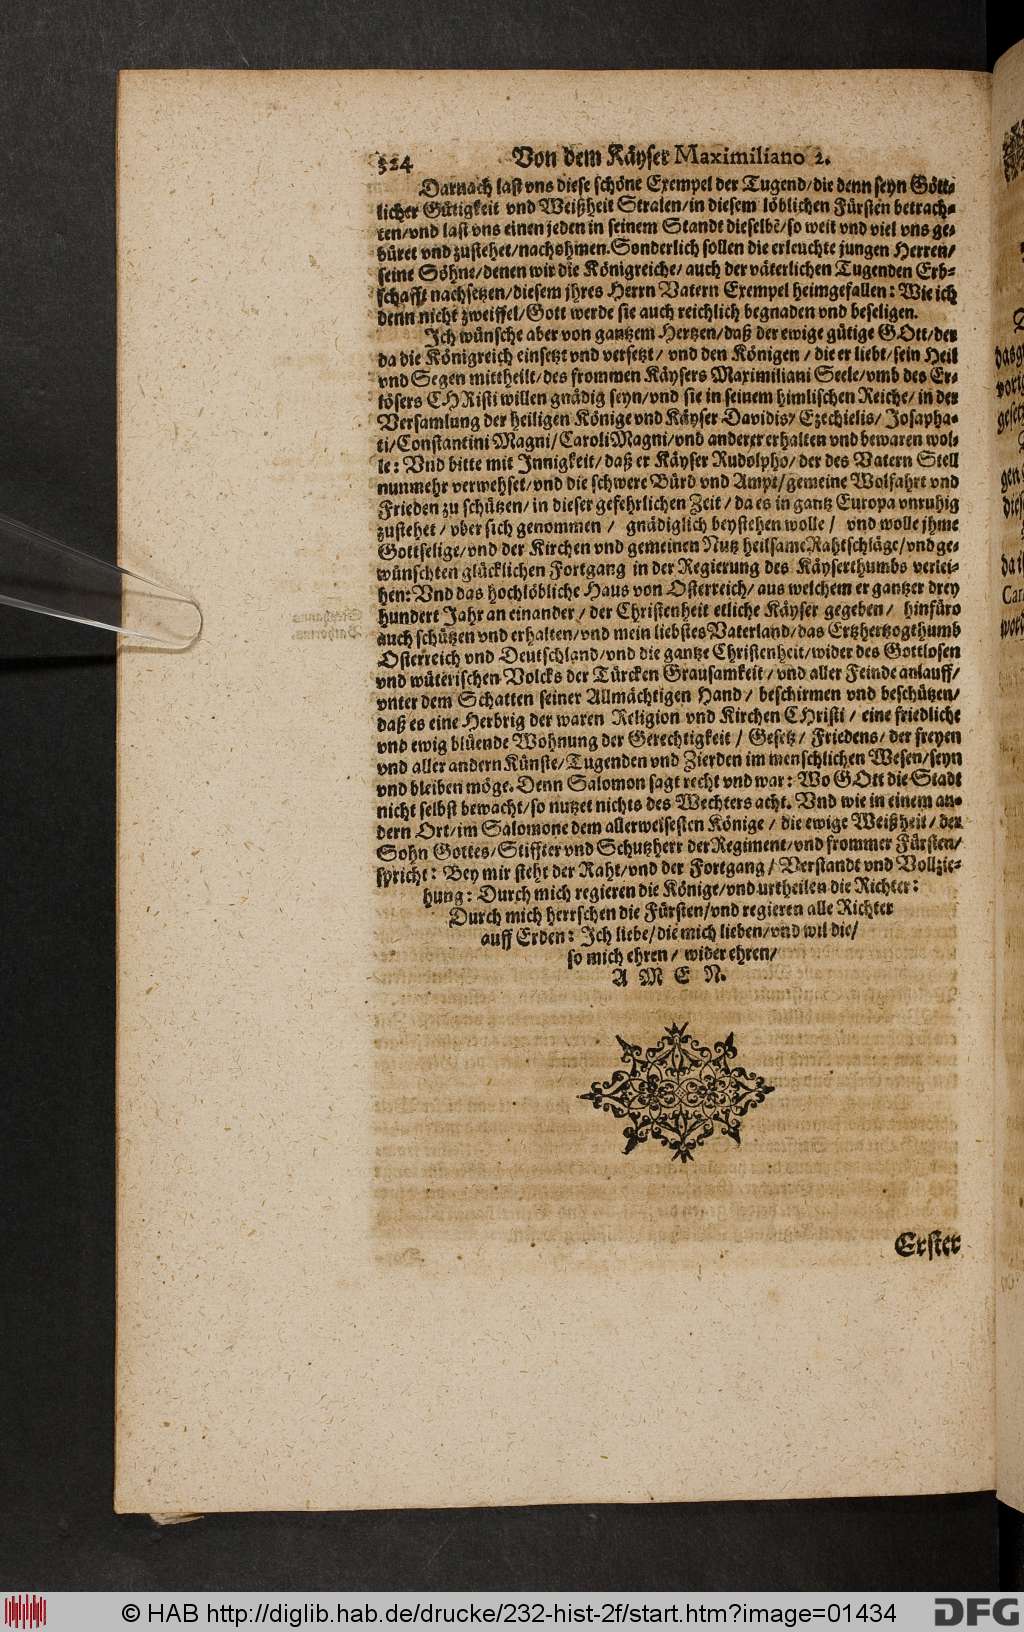 324 Von dem Käyser Maximiliano 2.
Darnach last vns diese schöne Exempel der Tugend/die denn seyn Gött-
licher Gütigkeit vnd Weißheit Stralen/in diesem löblichen Fürsten betrach-
ten/vnd last vns einen jeden in seinem Standt dieselbẽ/so weit vnd viel vns ge-
büret vnd zustehet/nachohmen. Sonderlich sollen die erleuchte jungen Herren/
seine Söhne/denen wir die Königreiche/auch der väterlichen Tugenden Erb-
schafft nachsetzen/diesem jhres Herrn Vatern Exempel heimgefallen: Wie ich
denn nicht zweiffel/Gott werde sie auch reichlich begnaden vnd beseligen.
Ich wünsche aber von gantzem Hertzen/daß der ewige gütige GOtt/der
da die Königreich einsetzt vnd versetzt/ vnd den Königen / die er liebt/sein Heil
vnd Segen mittheilt/des frommen Käysers Maximiliani Seele/vmb des Er-
lösers CHRisti willen gnädig seyn/vnd sie in seinem himlischen Reiche/ in der
Versamlung der heiligen Könige vnd Käyser Davidis/ Ezechielis/ Josapha-
ti/Constantini Magni/Caroli Magni/vnd anderer erhalten vnd bewaren wol-
le: Vnd bitte mit Innigkeit/daß er Käyser Rudolpho/der des Vatern Stell
nunmehr verwehset/vnd die schwere Bürd vnd Ampt/gemeine Wolfahrt vnd
Frieden zu schützen/in dieser gefehrlichen Zeit/da es in gantz Europa vnruhig
zustehet / vber sich genommen / gnädiglich beystehen wolle / vnd wolle jhme
Gottselige/vnd der Kirchen vnd gemeinen Nutz heilsame Rahtschläge/vnd ge-
wünschten glücklichen Fortgang in der Regierung des Käyserthumbs verlei-
hen: Vnd das hochlöbliche Haus von Osterreich/aus welchem er gantzer drey
hundert Jahr an einander / der Christenheit etliche Käyser gegeben / hinfüro
auch schützen vnd erhalten/vnd mein liebstes Vaterland/das Ertzhertzogthumb
Osterreich vnd Deutschland/vnd die gantze Christenheit/wider des Gottlosen
vnd wüterischen Volcks der Türcken Grausamkeit/vnd aller Feinde anlauff/
vnter dem Schatten seiner Allmächtigen Hand/ beschirmen vnd beschützen/
daß es eine Herbrig der waren Religion vnd Kirchen CHristi / eine friedliche
vnd ewig blüende Wohnung der Gerechtigkeit / Gesetz/ Friedens/ der freyen
vnd aller andern Künste/Tugenden vnd Zierden im menschlichen Wesen/seyn
vnd bleiben möge. Denn Salomon sagt recht vnd war: Wo GOtt die Stadt
nicht selbst bewacht/so nutzet nichts des Wechters acht. Vnd wie in einem an-
dern Ort/im Salomone dem allerweisesten Könige / die ewige Weißheit / der
Sohn Gottes/Stiffter vnd Schutzherr der Regiment/vnd frommer Fürsten/
spricht: Bey mir steht der Raht/vnd der Fortgang/ Verstandt vnd Vollzie-
hung: Durch mich regieren die Könige/vnd urtheilen die Richter:
Durch mich herrschen die Fürsten/vnd regieren alle Richter
auff Erden: Ich liebe/die mich lieben/vnd wil die/
so mich ehren / wider ehren/
A M E N.
Erster
© HAB http://diglib.hab.de/drucke/232-hist-2f/start.htm?image=01434
DFG